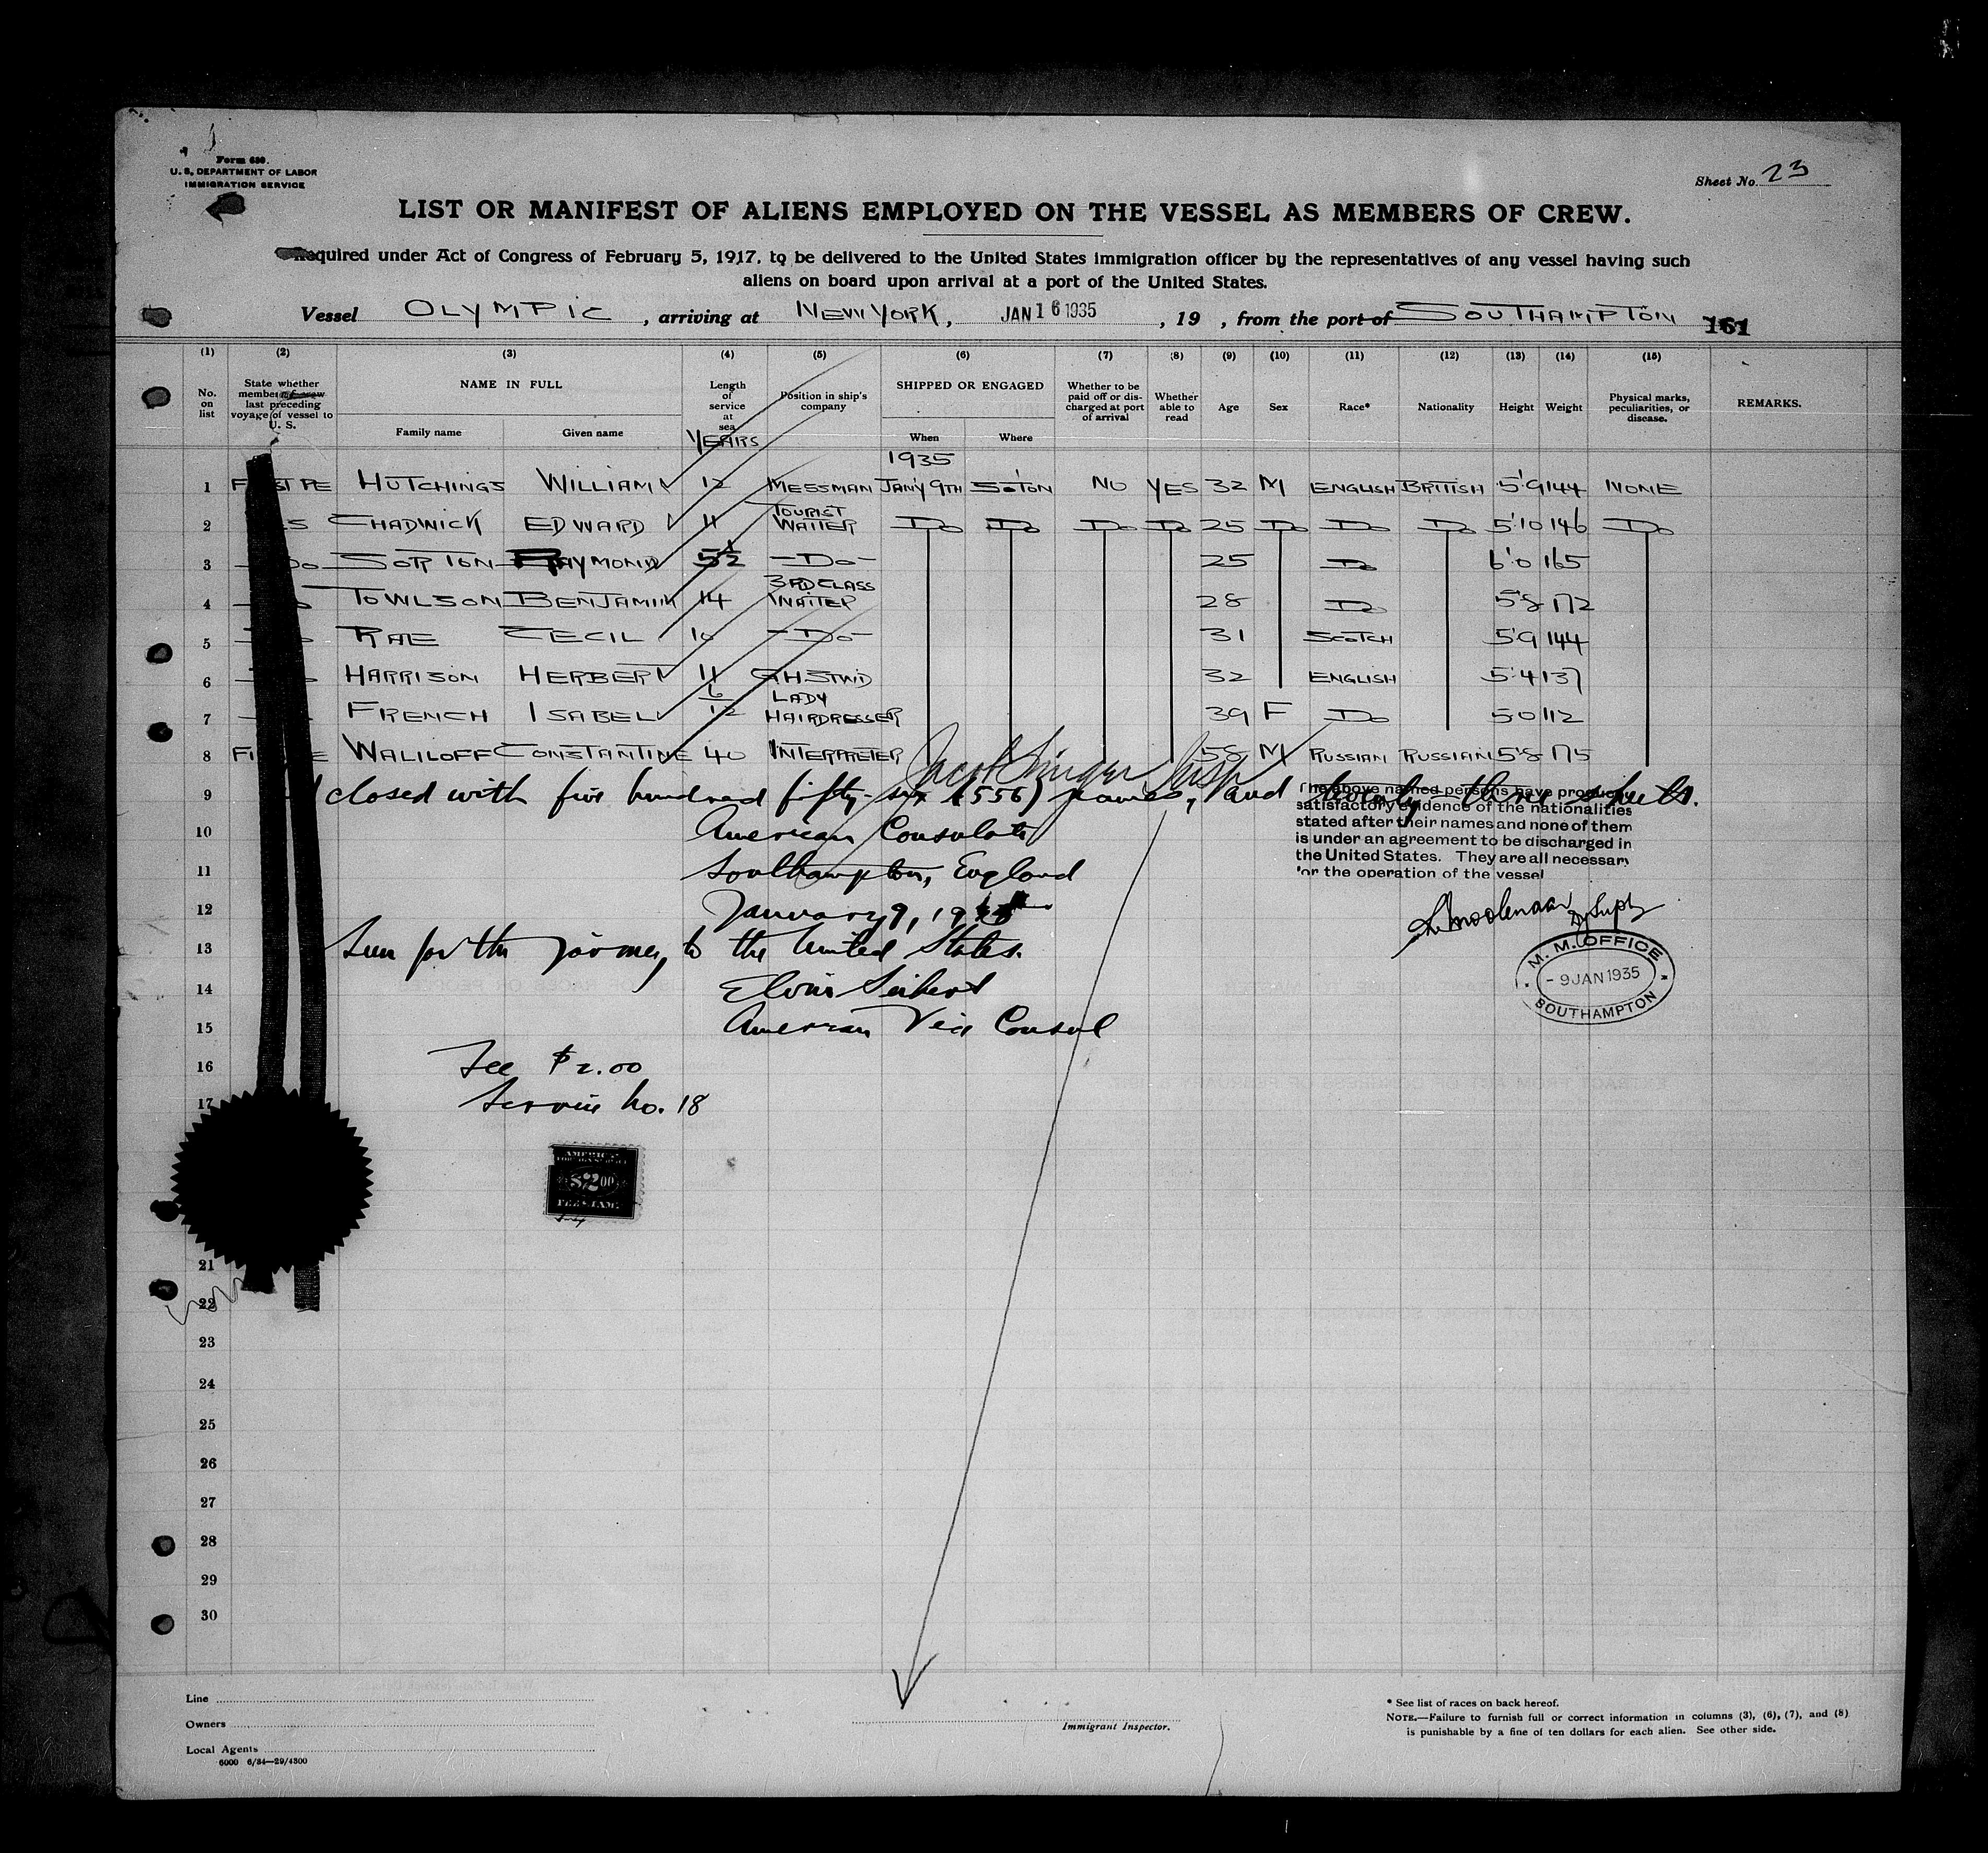 Form 680.
U. S. DEPARTMENT OF LABOR
IMMIGRATION SERVICE
Sheet No. 23
LIST OR MANIFEST OF ALIENS EMPLOYED ON THE VESSEL AS MEMBERS OF CREW.
Required under Act of Congress of February 5, 1917, to be delivered to the United States immigration officer by the representatives of any vessel having such
aliens on board upon arrival at a port of the United States.
Vessel OLYMPIC, arriving at NEW YORK, JAN 16 1935, 19 , from the port of SOUTHAMPTON 161
(1) (2) (3) (4) (5) (6) (7) (8) (9) (10) (11) (12) (13) (14) (15)
No. on list State whether member of crew last preceding voyage of vessel to U. S. NAME IN FULL Family name Given name Length of service at sea YEARS Position in ship's company SHIPPED OR ENGAGED When Where Whether to be paid off or discharged at port of arrival Whether able to read Age Sex Race* Nationality Height Weight Physical marks, peculiarities, or disease. REMARKS.
1935
1 HUTCHINGS WILLIAM 12 MESSMAN JANY 9TH SOTON NO YES 32 M ENGLISH BRITISH 5'9 144 NONE
2 CHADWICK EDWARD 11 TOURIST WAITER DO DO DO DO 25 DO DO DO 5'10 146 DO
3 DO RAYMOND 5½ -DO- 25 DO 6'0 165
4 TOWLSON BENJAMIN 14 3RD CLASS WAITER 28 DO 5'8 172
5 RAE CECIL 10 -DO- 31 SCOTCH 5'9 144
6 HARRISON HERBERT 11 32 ENGLISH 5'4 137
7 FRENCH ISABEL 6/12 LADY HAIRDRESSER 39 F DO 5'0 112
8 WALILOFF CONSTANTINE 40 INTERPRETER 58 M RUSSIAN RUSSIAN 5'8 175
Jacob Singer Insp
9 closed with five hundred fifty-six (556) names, and twenty-three sheets.
The above named persons have produced
satisfactory evidence of the nationalities
stated after their names and none of them
is under an agreement to be discharged in
the United States. They are all necessary
for the operation of the vessel
10 American Consulate
11 Southampton, England
12 January 9, 1935
Supt
13 Seen for the journey to the United States.
M. M. OFFICE
- 9 JAN 1935
SOUTHAMPTON
14 Seibert
15 American Vice Consul
16 Fee $2.00
17 Service No. 18
AMERICAN
FOREIGN SERVICE
$2.00
FEE STAMP
21
22
23
24
25
26
27
28
29
30
Line
Owners
Local Agents
6000 6/34—29/4300
Immigrant Inspector.
* See list of races on back hereof.
NOTE.—Failure to furnish full or correct information in columns (3), (6), (7), and (8)
is punishable by a fine of ten dollars for each alien. See other side.